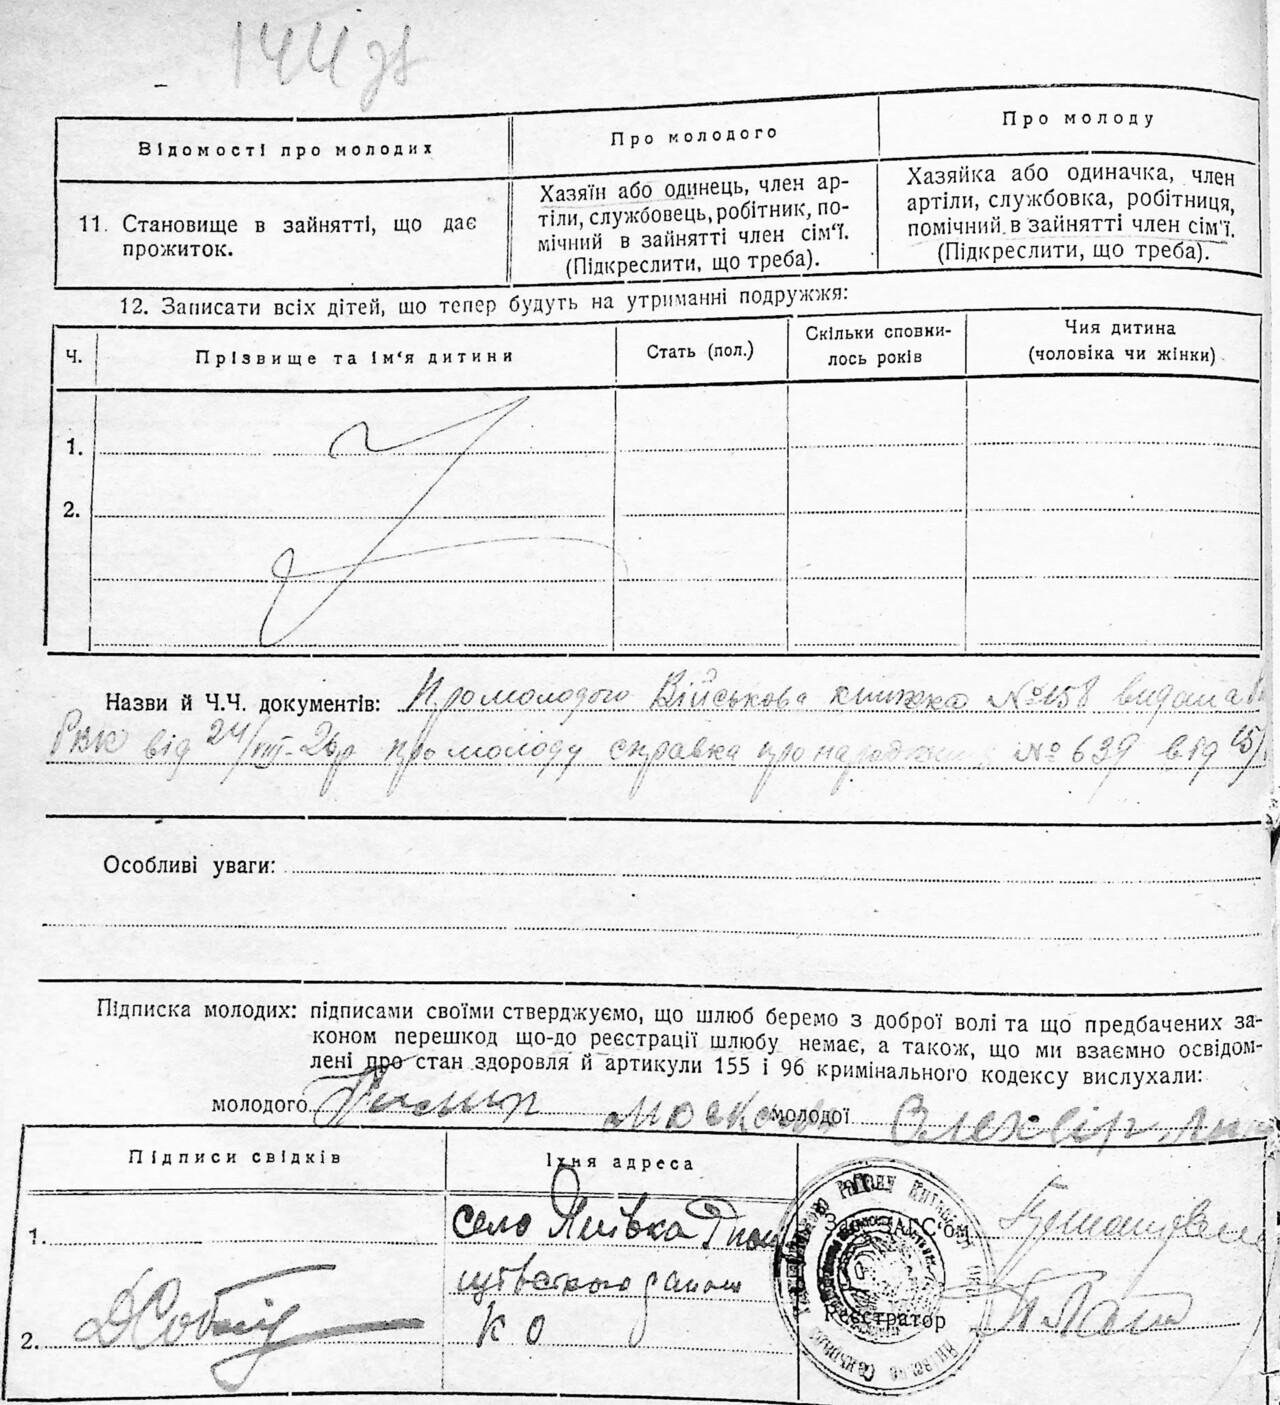 144 зв
Відомості про молодих
Про молодого
Про молоду
11. Становище в зайнятті, що дає
прожиток.
Хазяїн або одинець, член ар-
тіли, службовець, робітник, по-
мічний в зайнятті член сім'ї.
(Підкреслити, що треба).
Хазяйка або одиначка, член
артіли, службовка, робітниця,
помічний в зайнятті член сім'ї.
(Підкреслити, що треба).
12. Записати всіх дітей, що тепер будуть на утриманні подружжя:
Ч.
Прізвище та ім'я дитини
Стать (пол.)
Скільки сповни-
лось років
Чия дитина
(чоловіка чи жінки)
1.
2.
Назви й Ч.Ч. документів: Про молодого Військова книжка № 158 видана
РВК від 24/VIII-26р про молоду справка про народження № 639 від 15/
Особливі уваги:
Підписка молодих: підписами своїми стверджуємо, що шлюб беремо з доброї волі та що предбачених за-
коном перешкод що-до реєстрації шлюбу немає, а також, що ми взаємно освідом-
лені про стан здоровля й артикули 155 і 96 кримінального кодексу вислухали:
молодого
молодої
Підписи свідків
Їхня адреса
1.
село
2.
К О
Зав. ЗАГС'ом
Реєстратор